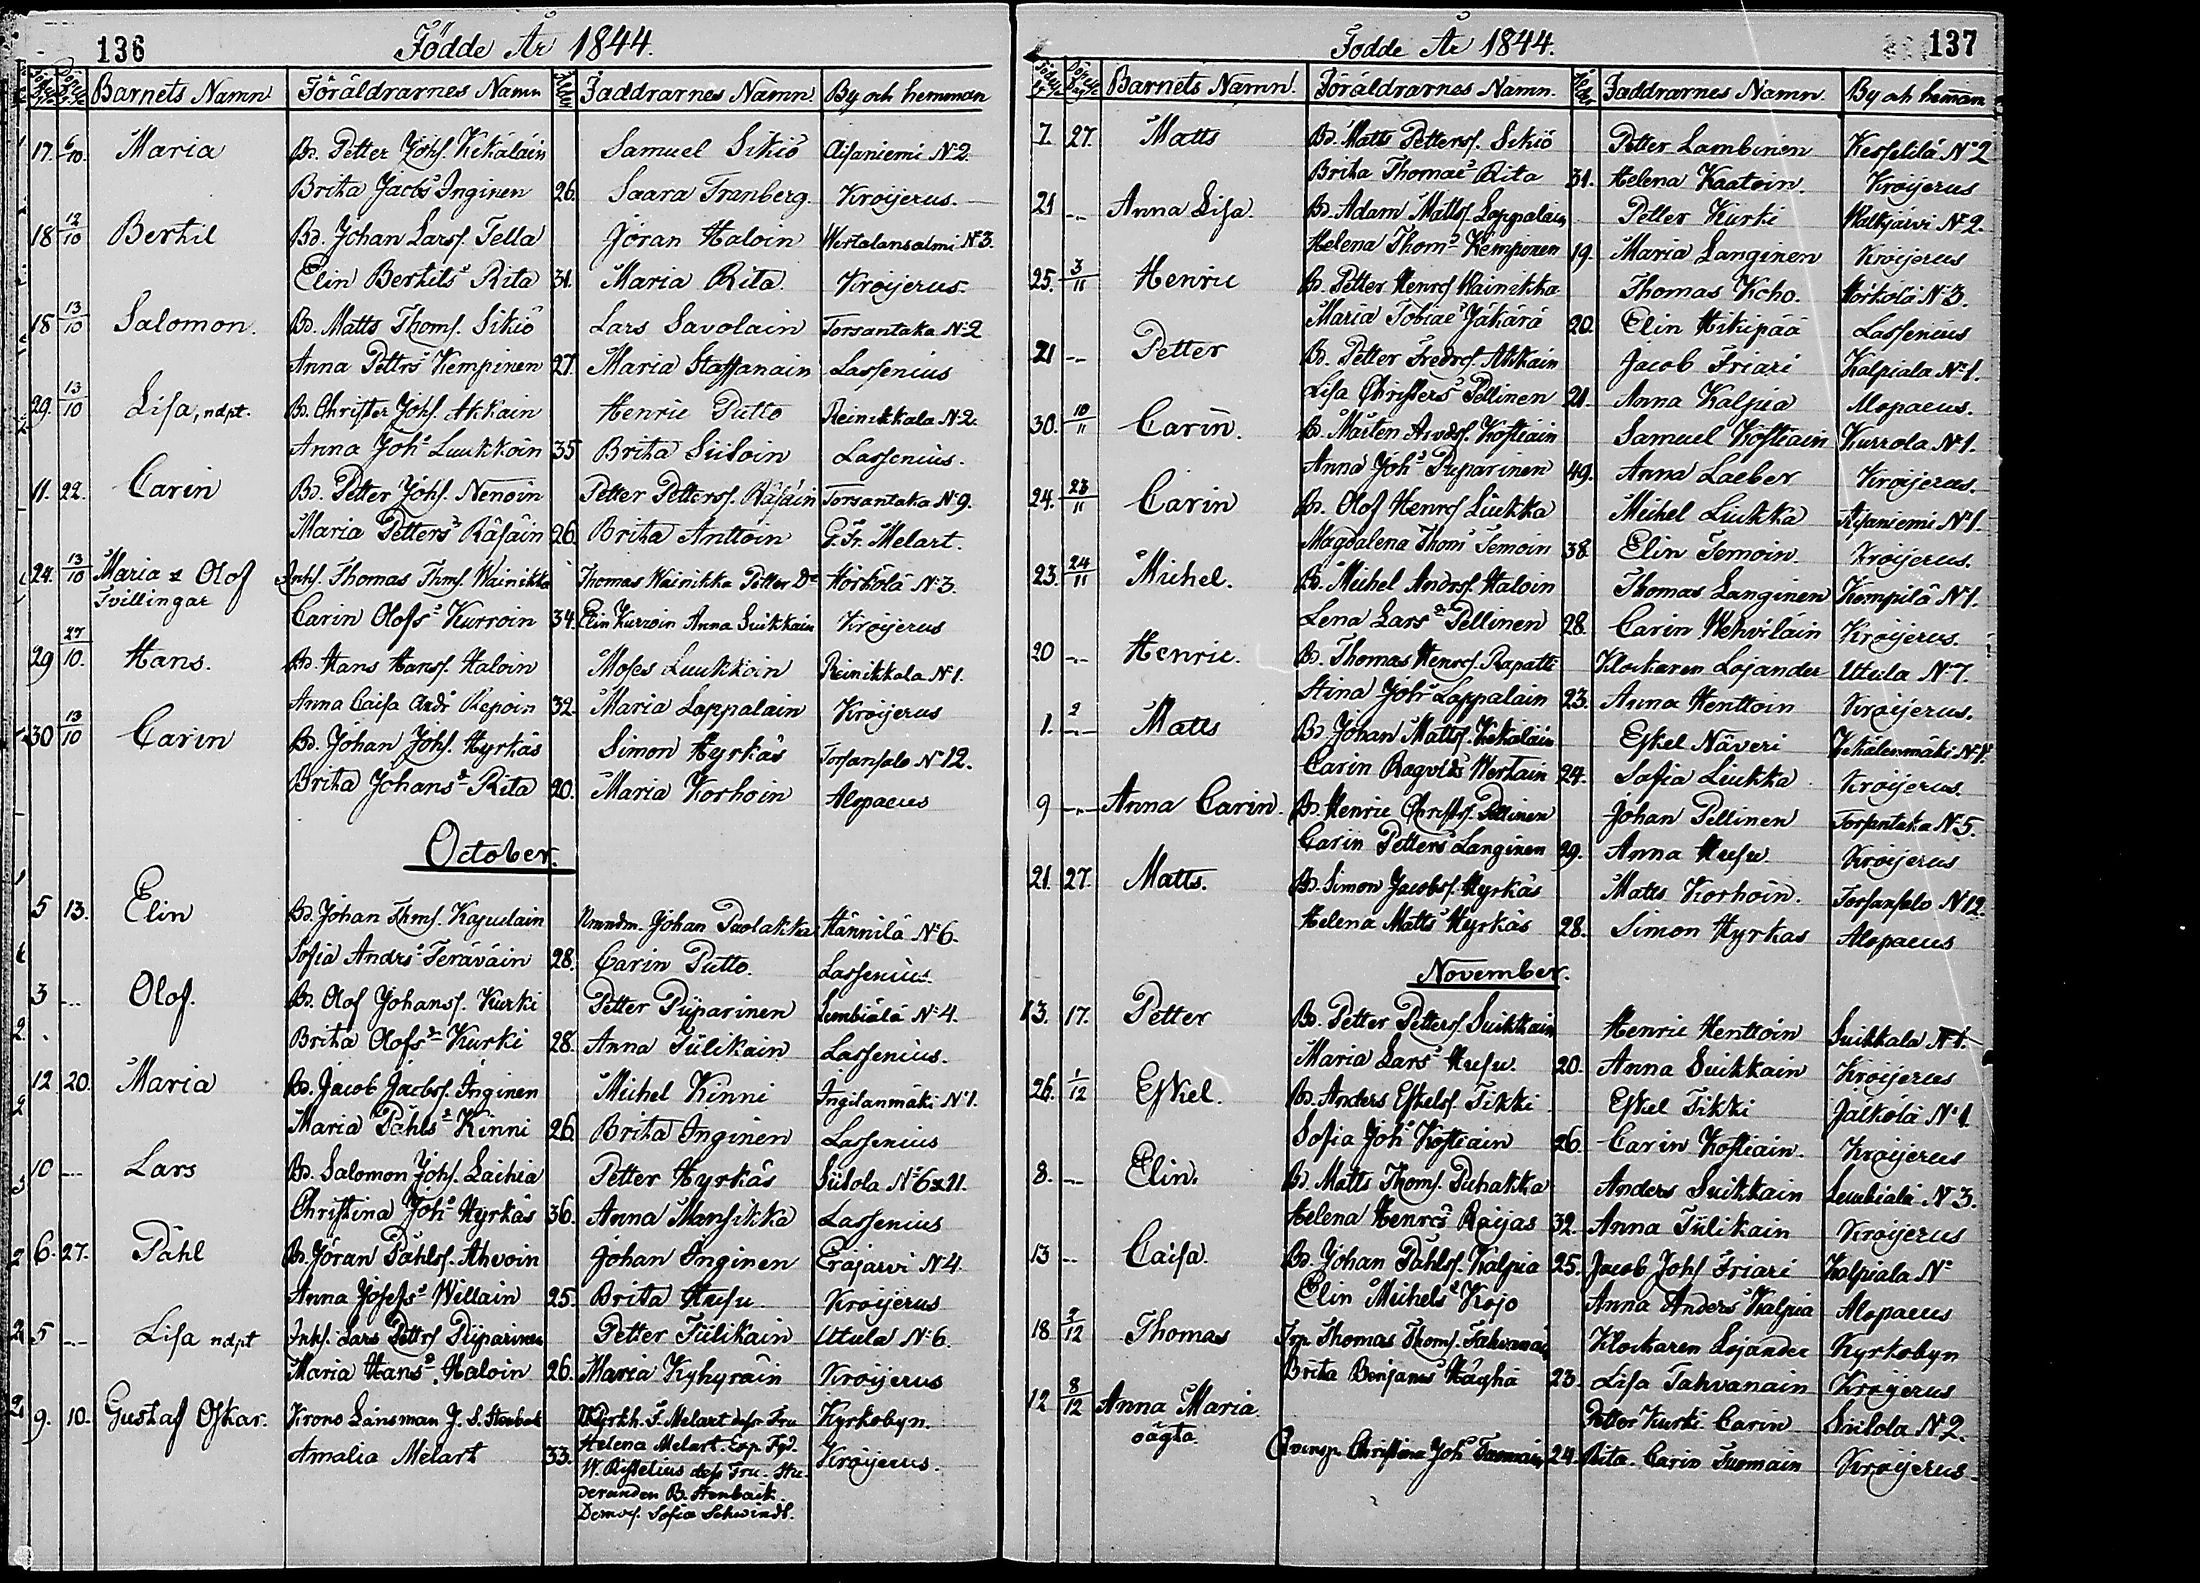 136 Födde År 1844.
Födelse Dag Döpelse Dag Barnets Namn Föräldrarnes Namn Ålder Faddrarnes Namn. By och hemman
17. 6/10. Maria Bd. Petter Johs. Kekäläin Samuel Sikiö Aisaniemi No 2.
Brita Jacbs Inginen 26. Saara Tranberg. Kroijerus.
18 12/10 Bertil Bd. Johan Larss. Tella Jöran Haloin Wertalansalmi No 3.
Elin Bertils Rita 31. Maria Rita. Kroijerus.
18 13/10 Salomon. Bd. Matts Thoms. Sikiö Lars Savolain Torsantaka No 2
Anna Petters Kempinen 27. Maria Staffanain Lassenius
29. 13/10 Lisa, ndpt. Bd. Christer Johs. Akkain Henric Putto Reinikkala No 2.
Anna Johs Luukkoin 35 Brita Siiloin Lassenius.
11. 22. Carin Bd. Petter Johs. Nenoin Petter Petterss. Räsäin Torsantaka No 9.
Maria Petters Räsäin 26. Brita Anttoin G. Fr. Melart.
24. 13/10 Maria & Olof Inhs. Thomas Thms. Wainikka Thomas Wainikka Petter Do Hörkölä No 3.
Tvillingar Carin Olofs Kurroin 34. Elin Kurroin Anna Suikkain Kroijerus
29 27/10. Hans. Bd. Hans Hanss. Haloin Moses Luukkoin Reinikkala No 1.
Anna Caisa Ands Repoin 32. Maria Lappalain Kroijerus
30 13/10 Carin Bd. Johan Johs. Hyrkäs Simon Hyrkäs Torsansalo No 12.
Brita Johans Rita 20. Maria Korhoin Alopaeus
October.
5 13. Elin Bd. Johan Thms. Kajudain Nmndm. Johan Puolakka Hännilä No 6.
Sofia Andrs Teräväin 28. Carin Putto. Lassenius.
3 -..- Olof. Bd. Olof Johanss. Kurki Petter Piiparinen Lembiälä No 4.
Brita Olofs Kurki 28. Anna Tiilikain Lassenius.
12 20. Maria Bd. Jacob Jacbs. Inginen Michel Kinni Ingilanmäki No 1.
Maria Påhls Kinni 26. Brita Inginen Lassenius
10 -..- Lars Bd. Salomon Johs. Laihia Petter Hyrkäs Siilola No 6 & 11.
Christina Johs Hyrkäs 36. Anna Mansikka Lassenius
6. 27. Påhl Bd. Jöran Påhls. Ahvoin Johan Inginen Eräjärvi No 4.
Anna Josefs Willain 25. Brita Husu. Kroijerus
5 -..- Lisa ndpt Inhs. Lars Pettrs Piiparinen Petter Tiilikain Utula No 6.
Maria Hans. Haloin 26. Maria Kyhyräin Kroijerus
9. 10. Gustaf Oskar. Krono Länsman J. S. Stenbäck Kyrkh. F. Melart dess Fru Kyrkobyn.
Amalia Melart 33. Helena Melart. Exp. Fgd. Kroijerus.
W. Relielius dess Fru. Stu-
deranden B. Stenbäck
Demois. Sofia Schwindt.
137 Födde År 1844.
Födelse Dag Döpelse Dag Barnets Namn. Föräldrarnes Namn. Ålder Faddrarnes Namn. By och hemman
7. 27. Matts Bd. Matts Petterss. Sikiö Petter Lambinen Kesselilä No 2
Brita Thomae Rita 31. Helena Kaatoin. Kroijerus
21 -..- Anna Lisa. Bd. Adam Matts. Lappalain Petter Kurki Walkjärvi No 2.
Helena Thoms Kempinen 19. Maria Langinen Kroijerus
25. 3/11 Henric Bd. Petter Henrcs Wainikka Thomas Koho. Hörkölä No 3.
Maria Tobiae Jäkärä 20. Elin Hikipää Lassenius
21 -..- Petter Bd. Petter Fredrcs. Akkain Jacob Friari Kalpiala No 1.
Lisa Christers Pellinen 21. Anna Kalpia Alopaeus.
30. 10/11 Carin. Bd. Mårten Arvds. Kostiain Samuel Kostiain Kurrola No 1.
Anna Johs Piiparinen 49. Anna Laeber Kroijerus.
24. 23/11 Carin Bd. Olof Henrcs Liukka Michel Liukka Aisaniemi No 1.
Magdalena Thoms Temoin 38. Elin Temoin. Kroijerus.
23. 24/11 Michel. Bd. Michel Andrs. Haloin Thomas Langinen Kempilä No 1.
Lena Lars Pellinen 28. Carin Wehviläin Kroijerus.
20 -..- Henric. Bd. Thomas Henrcs. Rapatti Klockaren Lojander Utula No 7.
Stina Johs Lappalain 23. Anna Henttoin Kroijerus.
1. -..- Matts Bd. Johan Matts. Kekäläin Eskel Näveri Kekälenmäki No 1.
Carin Ragvids Wertain 24. Sofia Liukka Kroijerus.
9 -..- Anna Carin. Bd. Henric Christs. Pellinen Johan Pellinen Torsantaka No 5.
Carin Petters Langinen 29. Anna Husu Kroijerus
21. 27. Matts. Bd. Simon Jacobs. Hyrkäs Matts Korhoin. Torsansalo No 12.
Helena Matts Hyrkäs 28. Simon Hyrkas Alopaeus
November.
13. 17. Petter Bd. Petter Petters. Suikkain Henric Henttoin Suikkala No 1.
Maria Lars Husu. 20. Anna Suikkain Kroijerus
26. 1/12 Eskel. Bd. Anders Eskels. Tikki Eskel Tikki Jälkölä No 1
Sofia Johs Kostiain 26. Carin Kostiain. Kroijerus
8. -..- Elin. Bd. Matts Thoms. Puhakka Anders Suikkain Lembiälä No 3.
Helena Henrcs Raijas 32. Anna Tiilikain Kroijerus
13 -..- Caisa. Bd. Johan Påhls. Kalpia 25. Jacob Johs Friari Kalpiala No
Elin Michels Kojo Anna Anders Kalpia Alopaeus
18. 2/12 Thomas Trp. Thomas Thoms. Tahvanain Klockaren Lojander Kyrkobyn
Brita Benjams Häghä 23. Lisa Tahvanain Kroijerus
12 8/12 Anna Maria Petter Kurki Carin Siilola No 2.
oägta. Qvinsp. Christina Johs Tuomain 24. Rita. Carin Tuomain Kroijerus